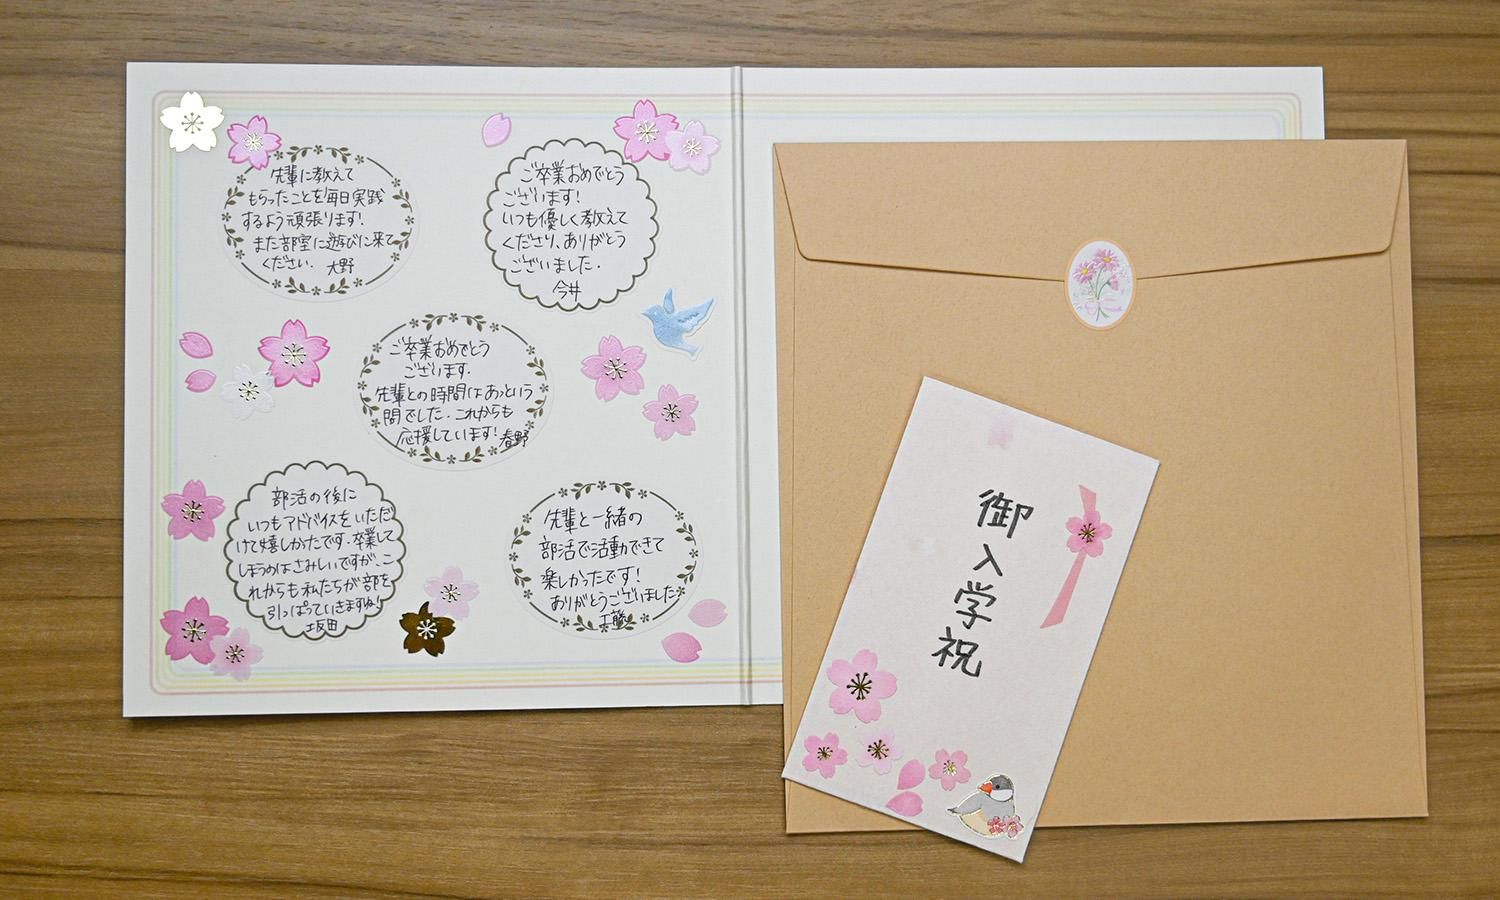 先輩に教えて
もらったことを毎日実践
するよう頑張ります!
また部室に遊びに来て
ください. 大野
ご卒業おめでとう
ございます!
いつも優しく教えて
くださり、ありがとう
ございました.
今井
ご卒業おめでとう
ございます.
先輩との時間はあっという
間でした. これからも
応援しています! 春野
部活の後に
いつもアドバイスをいただ
けて嬉しかったです. 卒業して
しまうのはさみしいですが、こ
れからも私たちが部を
引っぱっていきますね!
坂田
先輩と一緒の
部活で活動できて
楽しかったです!
ありがとうございました.
工藤
御入学祝